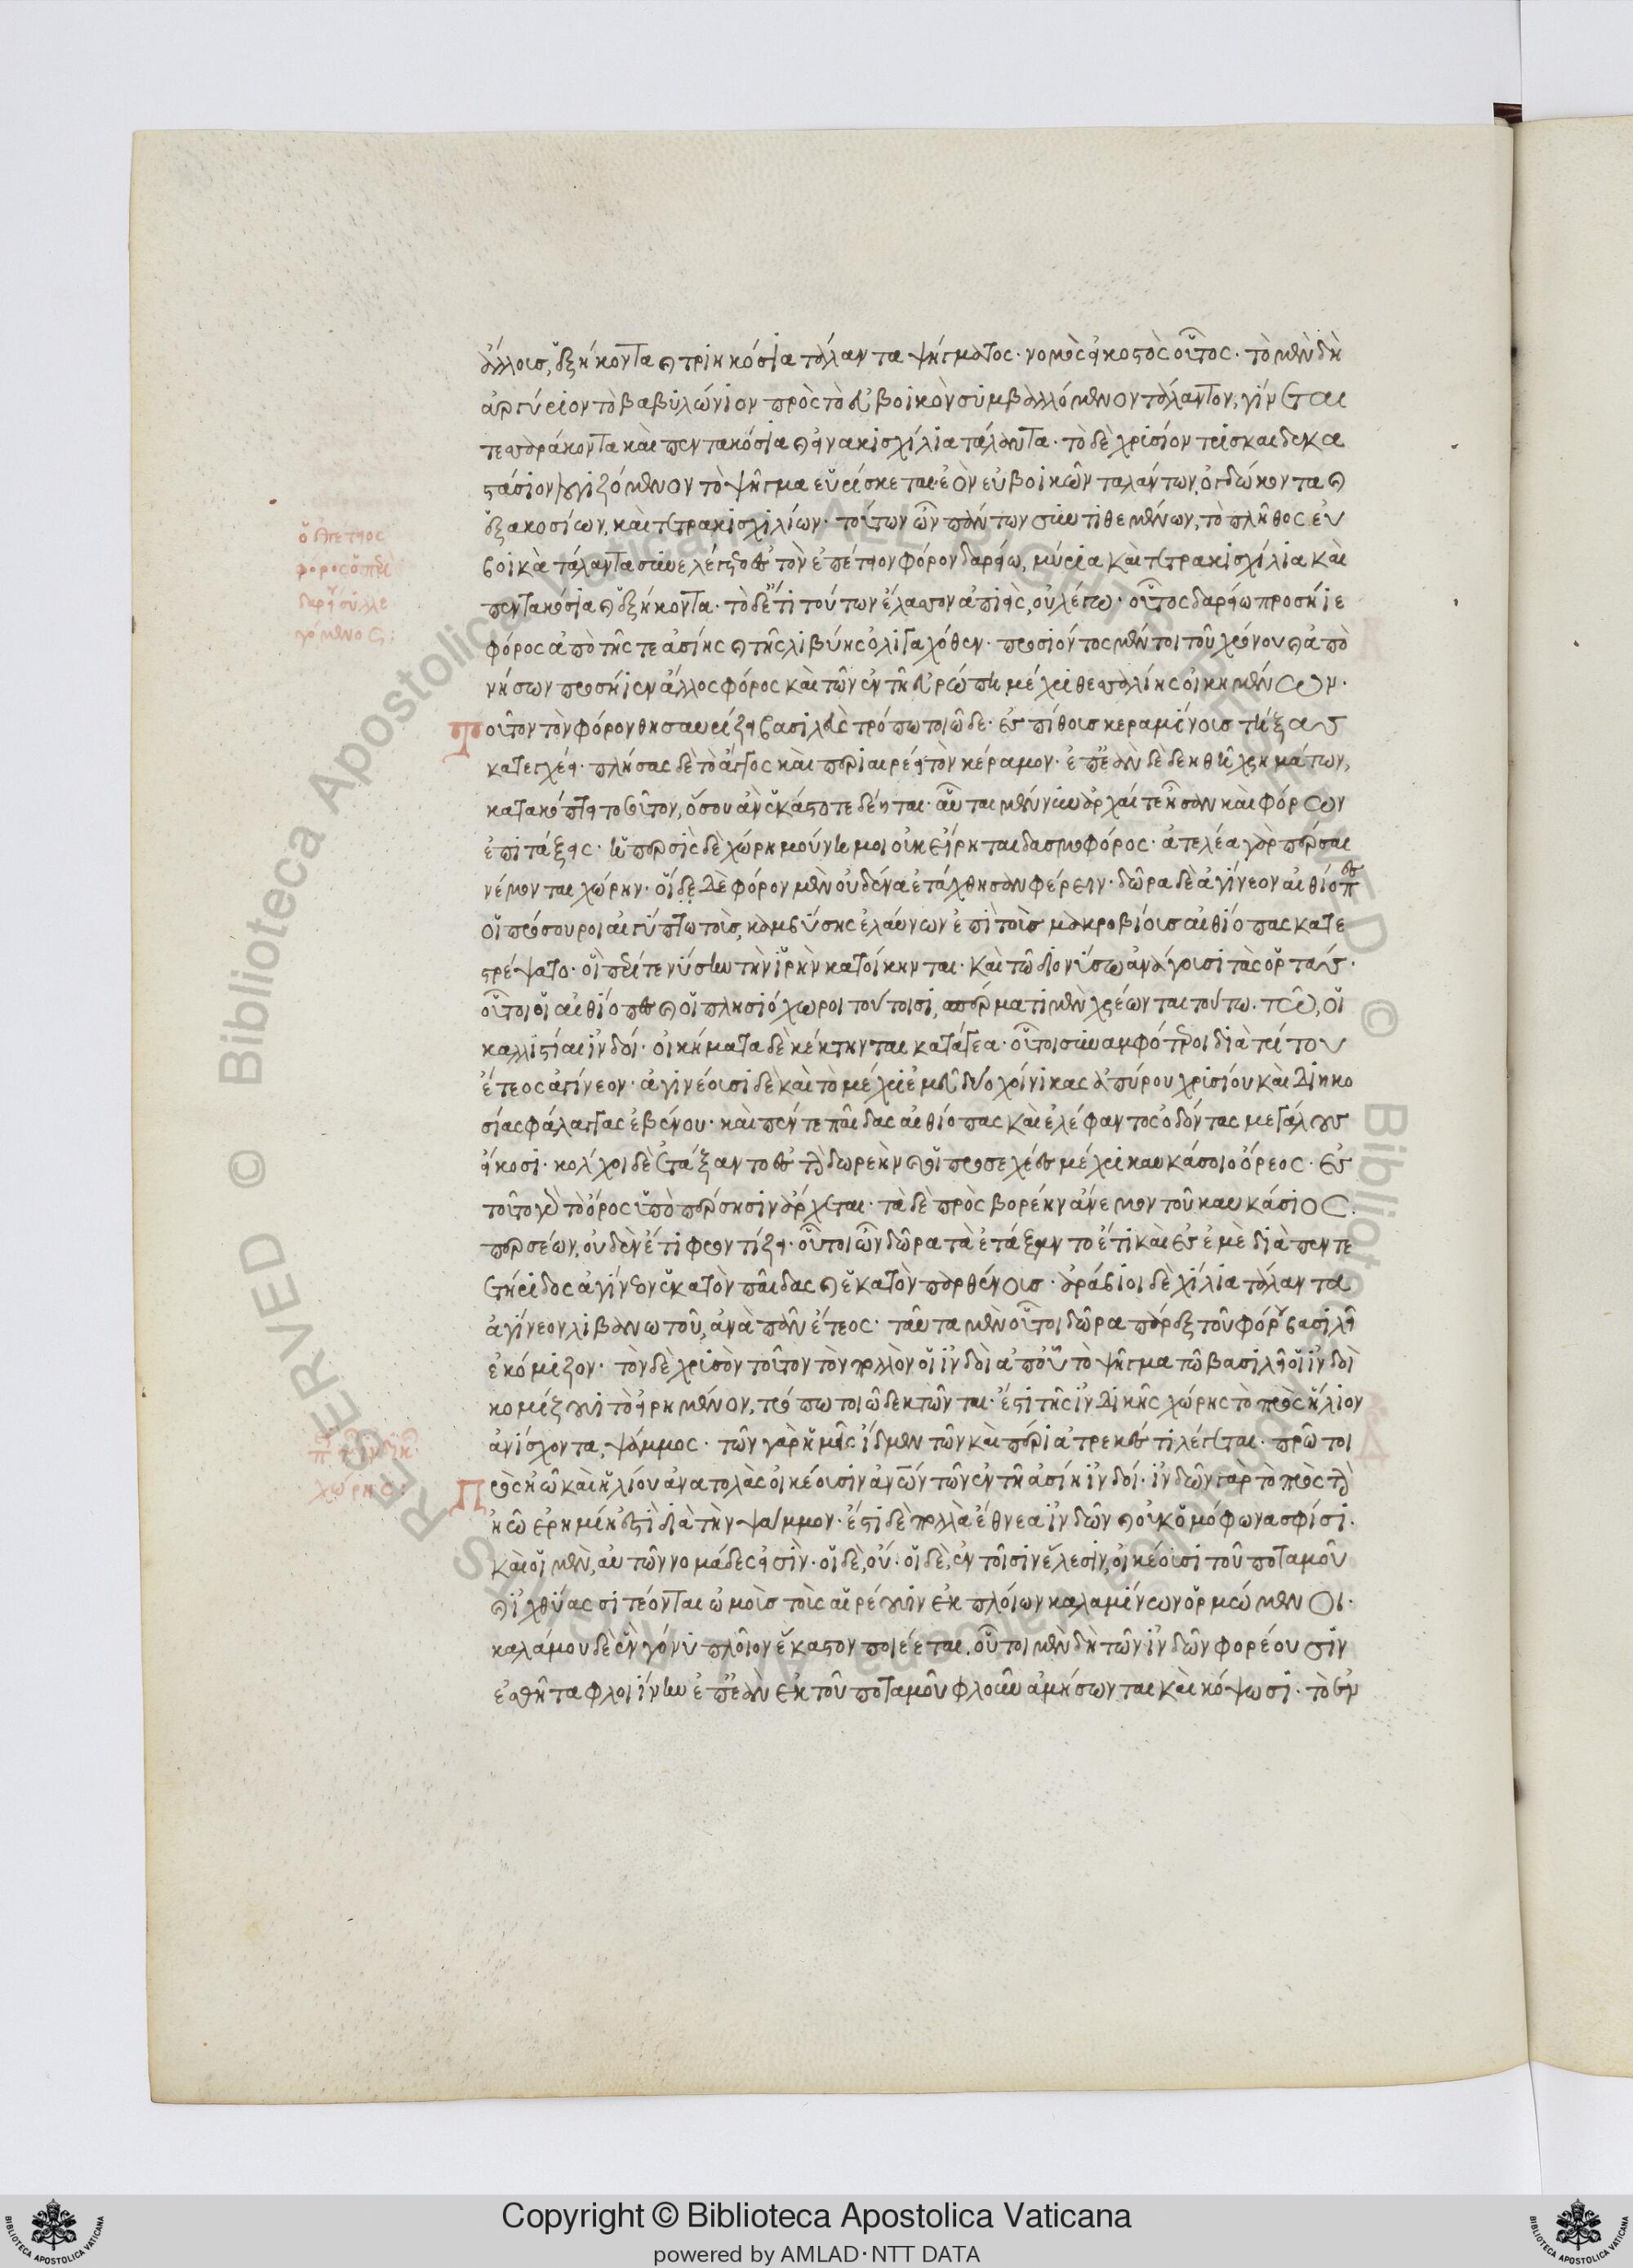 ἄλλους, ἑξήκοντα καὶ τριηκόσια τάλαντα ψήγματος· νομὸς εἰκοστὸς οὗτος. τὸ μὲν δὴ
ἀργύριον τὸ βαβυλώνιον πρὸς τὸ εὐβοικὸν συμβαλλόμενον τάλαντον, γίνεται
τεσσεράκοντα καὶ πεντακόσια καὶ εἰνακισχίλια τάλαντα· τὸ δὲ χρυσίον τρισκαιδεκα
στάσιον λογιζόμενον τὸ ψῆγμα εὑρίσκεται ἐὸν εὐβοικῶν ταλάντων, ὀγδώκοντα καὶ
ἑξακοσίων, καὶ τετρακισχιλίων· τούτων ὦν πάντων συντιθεμένων, τὸ πλῆθος εὐ
βοικὰ τάλαντα συνελέγετο ἐς τὸν ἐπέτειον φόρον δαρείω, μύρια καὶ τετρακισχίλια καὶ
πεντακόσια καὶ ἑξήκοντα· τὸ δ' ἔτι τούτων ἔλασσον ἀπιεὶς, οὐ λέγω· οὗτος δαρείω προσήιε
φόρος ἀπὸ τῆς τε ἀσίης καὶ τῆς λιβύης ὀλιγαχόθεν· προσιόντος μέντοι τοῦ χρόνου καὶ ἀπὸ
νήσων προσήιεν ἄλλος φόρος καὶ τῶν ἐν τῆ εὐρώπη μέχρι θεσσαλίης οἰκημένων.
Τοῦτον τὸν φόρον θησαυρίζει βασιλεὺς τρόπω τοιῶδε· ἐς πίθους κεραμίνους τήξας
κατεγχέει· πλήσας δὲ τὸ ἄγγος καὶ περιαιρέει τὸν κέραμον· ἐπεὰν δὲ δεηθῆ χρημάτων,
κατακόπτει τοῦτον, ὅσου ἂν ἑκάστοτε δέηται· αὗται μέν νυν ἀρχαί τε ἦσαν καὶ φόρων
ἐπιτάξεις· ἡ περσὶς δὲ χώρη μούνη μοι οὐκ εἴρηται δασμοφόρος· ἀτελέα γὰρ πέρσαι
νέμονται χώρην· οἵδε δὲ φόρον μὲν οὐδένα ἐτάχθησαν φέρειν· δῶρα δὲ ἀγίνεον αἰθίοπες
οἱ πρόσουροι αἰγύπτω τοὺς, καμβύσης ἐλαύνων ἐπὶ τοὺς μακροβίους αἰθίοπας κατε
στρέψατο· οἳ περί τε νύσην τὴν ἱρὴν κατοίκηνται· καὶ τῶ διονύσω ἀνάγουσι τὰς ὁρτάς.
οὗτοι οἱ αἰθίοπες καὶ οἱ πλησιόχωροι τούτοισι, σπέρματι μὲν χρέωνται τούτω. τῶ, οἱ
καλλιστίαι ἰνδοί· οἰκήματα δὲ κέκτηνται κατάγεα· οὗτοι συναμφότεροι διὰ τρίτου
ἔτεος ἀγίνεον· ἀγινέουσι δὲ καὶ τὸ μέχρι ἐμεῦ δύο χοίνικας ἀπύρου χρυσίου καὶ διηκο
σίας φάλαγγας ἐβένου· καὶ πέντε παῖδας αἰθίοπας καὶ ἐλέφαντος ὀδόντας μεγάλους
εἴκοσι· κόλχοι δὲ ἐτάξαντο ἐς τὴν δωρεὴν καὶ οἱ προσεχέες μέχρι καυκάσοιο ὄρεος· ἐς
τοῦτο γὰρ τὸ ὄρος ὑπὸ πέρσησιν ἄρχεται· τὰ δὲ πρὸς βορέην ἄνεμον τοῦ καυκάσιος.
περσέων, οὐδὲν ἔτι φροντίζει· οὗτοι ὦν δῶρα τὰ ἐτάξαντο ἔτι καὶ ἐς ἐμὲ διὰ πεντε
τηρίδος ἀγίνεον ἑκατὸν παῖδας καὶ ἑκατὸν παρθένους· ἀράβιοι δὲ χίλια τάλαντα
ἀγίνεον λιβανωτοῦ, ἀνὰ πᾶν ἔτεος· ταῦτα μὲν οὗτοι δῶρα πάρεξ τοῦ φόρου βασιλῆ
ἐκόμιζον· τὸν δὲ χρυσὸν τοῦτον τὸν πολλὸν οἱ ἰνδοὶ ἀπ' οὗ τὸ ψῆγμα τῶ βασιλεῖ οἱ ἰνδοὶ
κομίζουσι τὸ εἰρημένον, τρόπω τοιῶδε κτῶνται· ἔστι τῆς ἰνδικῆς χώρης τὸ πρὸς ἥλιον
ἀνίσχοντα, ψάμμος· τῶν γὰρ ἡμεῖς ἴδμεν τῶν καὶ πέρι ἀτρεκές τι λέγεται· πρῶτοι
Πρὸς ἠῶ καὶ ἡλίου ἀνατολὰς οἰκέουσιν ἀνθρώπων τῶν ἐν τῆ ἀσίη ἰνδοί· ἰνδῶν γὰρ τὸ πρὸς τὴν
ἠῶ ἐρημίη ἐστὶ διὰ τὴν ψάμμον· ἔστι δὲ πολλὰ ἔθνεα ἰνδῶν καὶ οὐκ ὁμόφωνα σφίσι.
καὶ οἱ μὲν, αὐτῶν νομάδες εἰσὶν· οἱ δὲ, οὔ· οἱ δὲ, ἐν τοῖσιν ἕλεσιν, οἰκέουσι τοῦ ποταμοῦ
καὶ ἰχθύας σιτέονται ὠμοὺς τοὺς αἱρέουσιν ἐκ πλοίων καλαμίνων ὁρμώμενοι.
καλάμου δὲ ἓν γόνυ πλοῖον ἕκαστον ποιέεται. οὗτοι μὲν δὴ τῶν ἰνδῶν φορέουσιν
ἐσθῆτα φλοίνην ἐπεὰν ἐκ τοῦ ποταμοῦ φλοῦν ἀμήσωνται καὶ κόψωσι· τὸ ἐν
ὁ ἐπέτειος
φόρος ὁ ἐπὶ
δαρείου συλλε
γόμενος:
χώρης: